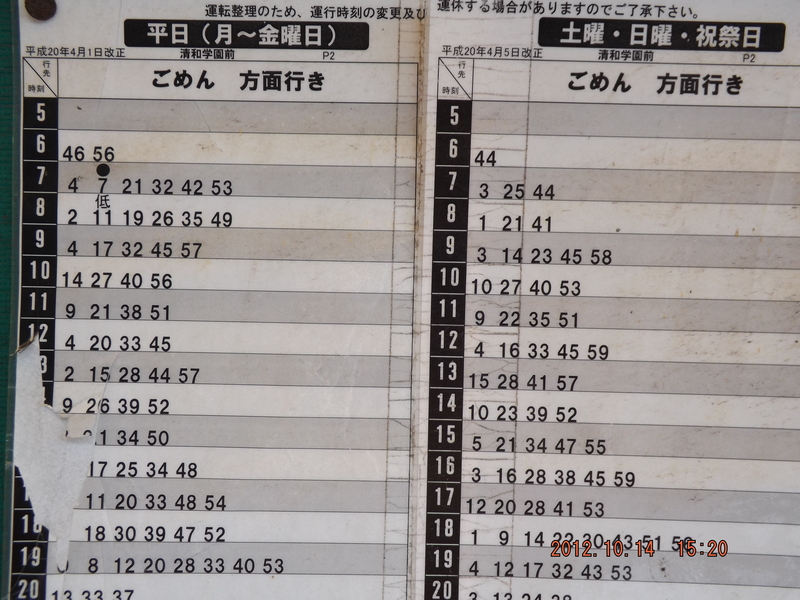 運転整理のため、運行時刻の変更及び
平日（月～金曜日）
平成20年4月1日改正 清和学園前 P2
行先
時刻
ごめん 方面行き
5
6 46 56
7 4 7 21 32 42 53
低
8 2 11 19 26 35 49
9 4 17 32 45 57
10 14 27 40 56
11 9 21 38 51
12 4 20 33 45
2 15 28 44 57
9 26 39 52
34 50
17 25 34 48
11 20 33 48 54
18 18 30 39 47 52
19 8 12 20 28 33 40 53
20 13 33 37
運休する場合がありますのでご了承下さい。
土曜・日曜・祝祭日
平成20年4月5日改正 清和学園前 P2
行先
時刻
ごめん 方面行き
5
6 44
7 3 25 44
8 1 21 41
9 3 14 23 45 58
10 10 27 40 53
11 9 22 35 51
12 4 16 33 45 59
13 15 28 41 57
14 10 23 39 52
15 5 21 34 47 55
16 3 16 28 38 45 59
17 12 20 28 41 53
18 1 9 14 22 30 43 51 56
19 4 12 17 32 43 53
20 3 13 24 38
2012.10.14 15:20